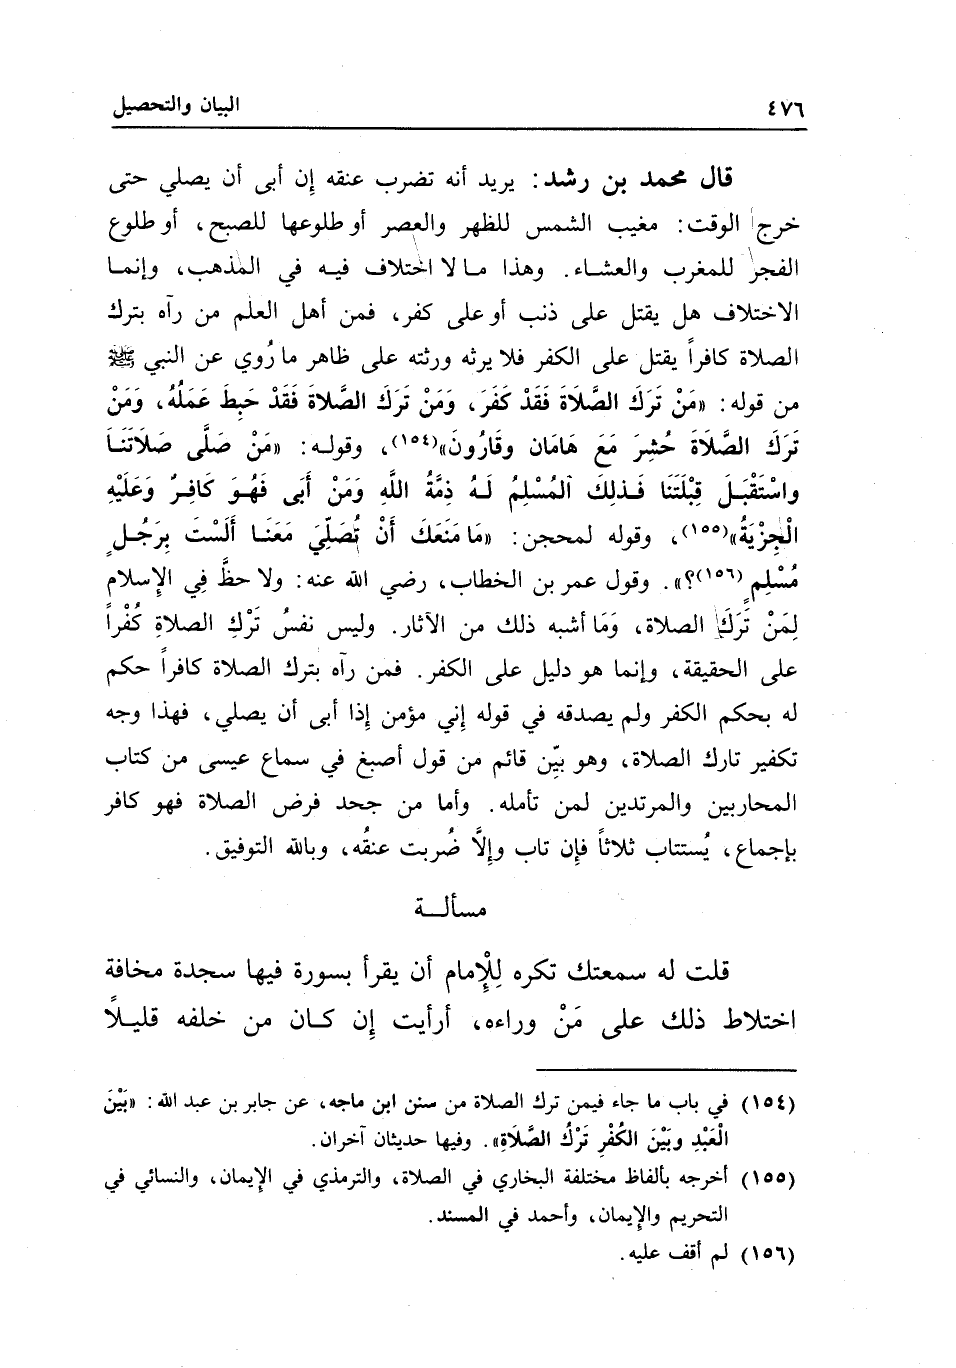 ٤٧٦ البيان والتحصيل
قال محمد بن رشد: يريد أنه تضرب عنقه إن أبى أن يصلي حتى
خرج الوقت: مغيب الشمس للظهر والعصر أو طلوعها للصبح، أو طلوع
الفجر للمغرب والعشاء. وهذا ما لا اختلاف فيه في المذهب، وإنما
الاختلاف هل يقتل على ذنب أو على كفر، فمن أهل العلم من رآه بترك
الصلاة كافراً يقتل على الكفر فلا يرثه ورثته على ظاهر ما رُوي عن النبي ﷺ
من قوله: «مَنْ تَرَكَ الصَّلاَةَ فَقَدْ كَفَرَ، وَمَنْ تَرَكَ الصَّلاةَ فَقَدْ حَبِطَ عَمَلُهُ، وَمَنْ
تَرَكَ الصَّلَاةَ حُشِرَ مَعَ هَامَان وقَارُونَ»(١٥٤)، وقوله: «مَنْ صَلَّى صَلاَتَنَا
واسْتَقْبَلَ قِبْلَتَنَا فَذلِكَ اَلمُسْلِمُ لَهُ ذِمَّةُ اللَّهِ وَمَنْ أَبَى فَهُوَ كَافِرٌ وَعَلَيْهِ
الْجِزْيَةُ»(١٥٥)، وقوله لمحجن: «مَا مَنَعَكَ أَنْ تُصَلِّيَ مَعَنَا أَلَسْتَ بِرَجُلٍ
مُسْلِمٍ(١٥٦)؟». وقول عمر بن الخطاب، رضي الله عنه: ولا حظَّ فِي الإِسلام
لِمَنْ تَرَكَ الصلاة، وَمَا أشبه ذلك من الآثار. وليس نفسُ تَرْكِ الصلاةِ كُفْراً
على الحقيقة، وإنما هو دليل على الكفر. فمن رآه بترك الصلاة كافراً حكم
له بحكم الكفر ولم يصدقه في قوله إني مؤمن إذا أبى أن يصلي، فهذا وجه
تكفير تارك الصلاة، وهو بيّن قائم من قول أصبغ في سماع عيسى من كتاب
المحاربين والمرتدين لمن تأمله. وأما من جحد فرض الصلاة فهو كافر
بإجماع، يُستتاب ثلاثاً فإن تاب وإلَّا ضُربت عنقُه، وبالله التوفيق.
مسألة
قلت له سمعتك تكره لِلْإِمام أن يقرأ بسورة فيها سجدة مخافة
اختلاط ذلك على مَنْ وراءه، أرأيت إن كان من خلفه قليلاً
(١٥٤) في باب ما جاء فيمن ترك الصلاة من سنن ابن ماجه، عن جابر بن عبد الله: «بَيْنَ
الْعَبْدِ وبَيْنَ الكُفْرِ تَرْكُ الصَّلَاةِ». وفيها حديثان آخران.
(١٥٥) أخرجه بألفاظ مختلفة البخاري في الصلاة، والترمذي في الإيمان، والنسائي في
التحريم والإيمان، وأحمد في المسند.
(١٥٦) لم أقف عليه.